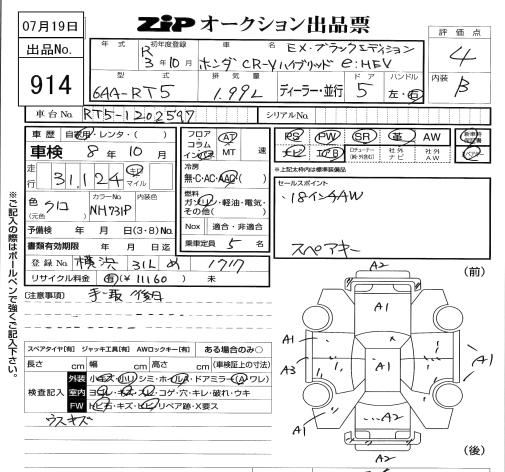 07月19日
ZiP オークション出品票
出品No.
914
年式 初年度登録 車名 評価点
R3年10月 ホンダ CR-Vハイブリッド e:HEV
EX・ブラックエディション
4
型式 排気量 ドア ハンドル 内装
6AA-RT5 1.99L ディーラー・並行 5 左・右 B
車台No. RT5-1202597 シリアルNo.
車歴 自家用・レンタ・( )
車検 8年10月
走行 31,124 キロ マイル
色 (元色) クロ カラーNo. NH731P
予備検 年 月 日(3・8)No.
書類有効期限 年 月 日迄
登録No. 横浜 31L め 1717
リサイクル料金 有(¥11160) 未
フロア コラム インパネ AT MT 速
冷房 無・C・AC・AAC( )
燃料 ガソリン・軽油・電気・その他( )
Nox 適合・非適合
乗車定員 5名
PS PW SR 革 AW 新車時保証書
ナビ エアB 社外ナビ 社外AW スペアキー
※上記太枠内は標準装備品
セールスポイント
・18インチAW
スペアキー
[注意事項]
スペアタイヤ[有] ジャッキ工具[有] AWロックキー[有] ある場合のみ○
長さ cm 幅 cm 高さ cm (車検証上の寸法)
検査記入
外装 小キズ・小凹・シミ・ホイール・ドアミラー(A)ワレ)
室内 ヨゴレ・キズ・スレ・コゲ・穴・キレ・破れ・ウキ
FW トビ石・キズ・ヒビ・リペア跡・X要ス
ウスキズ
※ご記入の際はボールペンで強くご記入下さい。
(前)
A2
A1
A1
A1
A3
A1
A1
A1
A2
A2
(後)